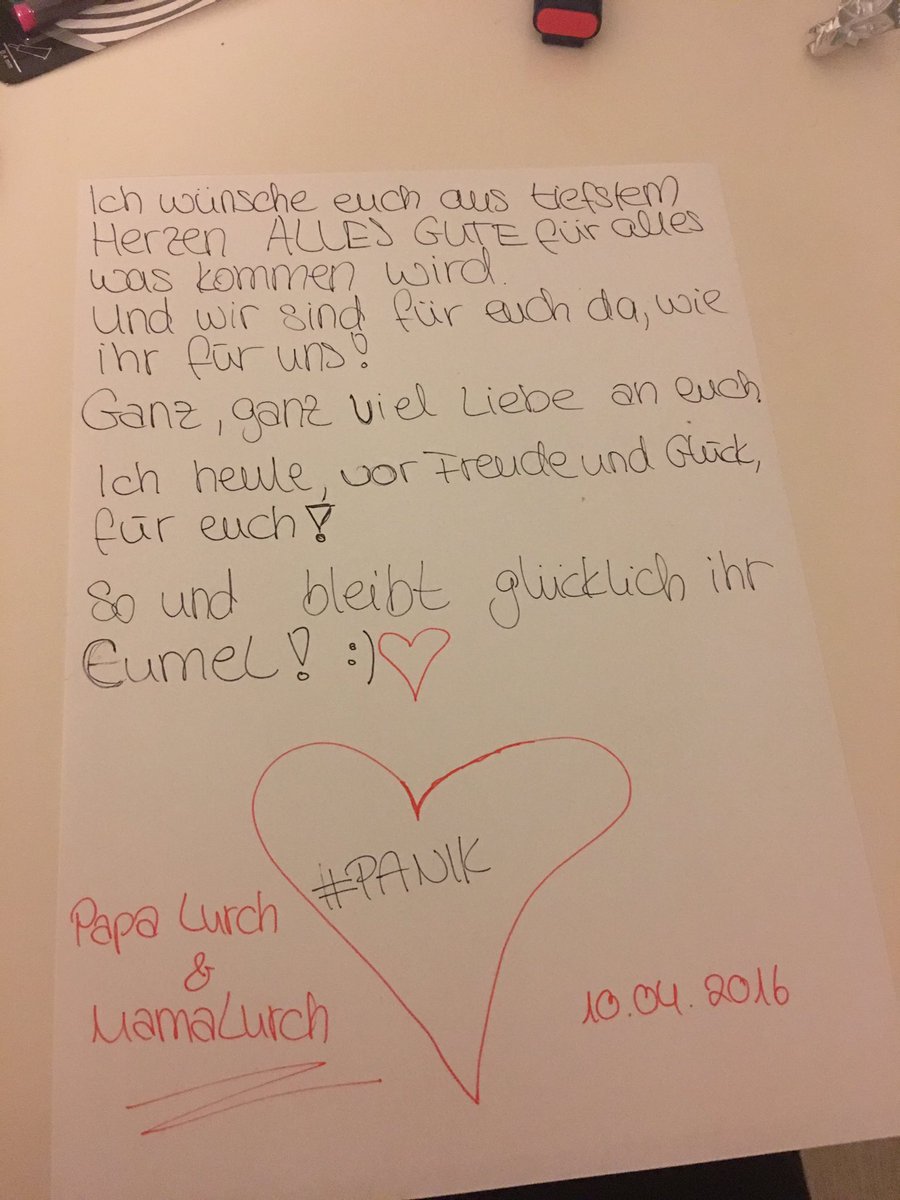 Ich wünsche euch aus tiefstem
Herzen ALLES GUTE für alles
was kommen wird.
Und wir sind für euch da, wie
ihr für uns!
Ganz, ganz viel Liebe an euch
Ich heule, vor Freude und Glück,
für euch!
So und bleibt glücklich ihr
Eumel! :)
#PANIK
Papa Lurch
&
Mama Lurch
10.04.2016